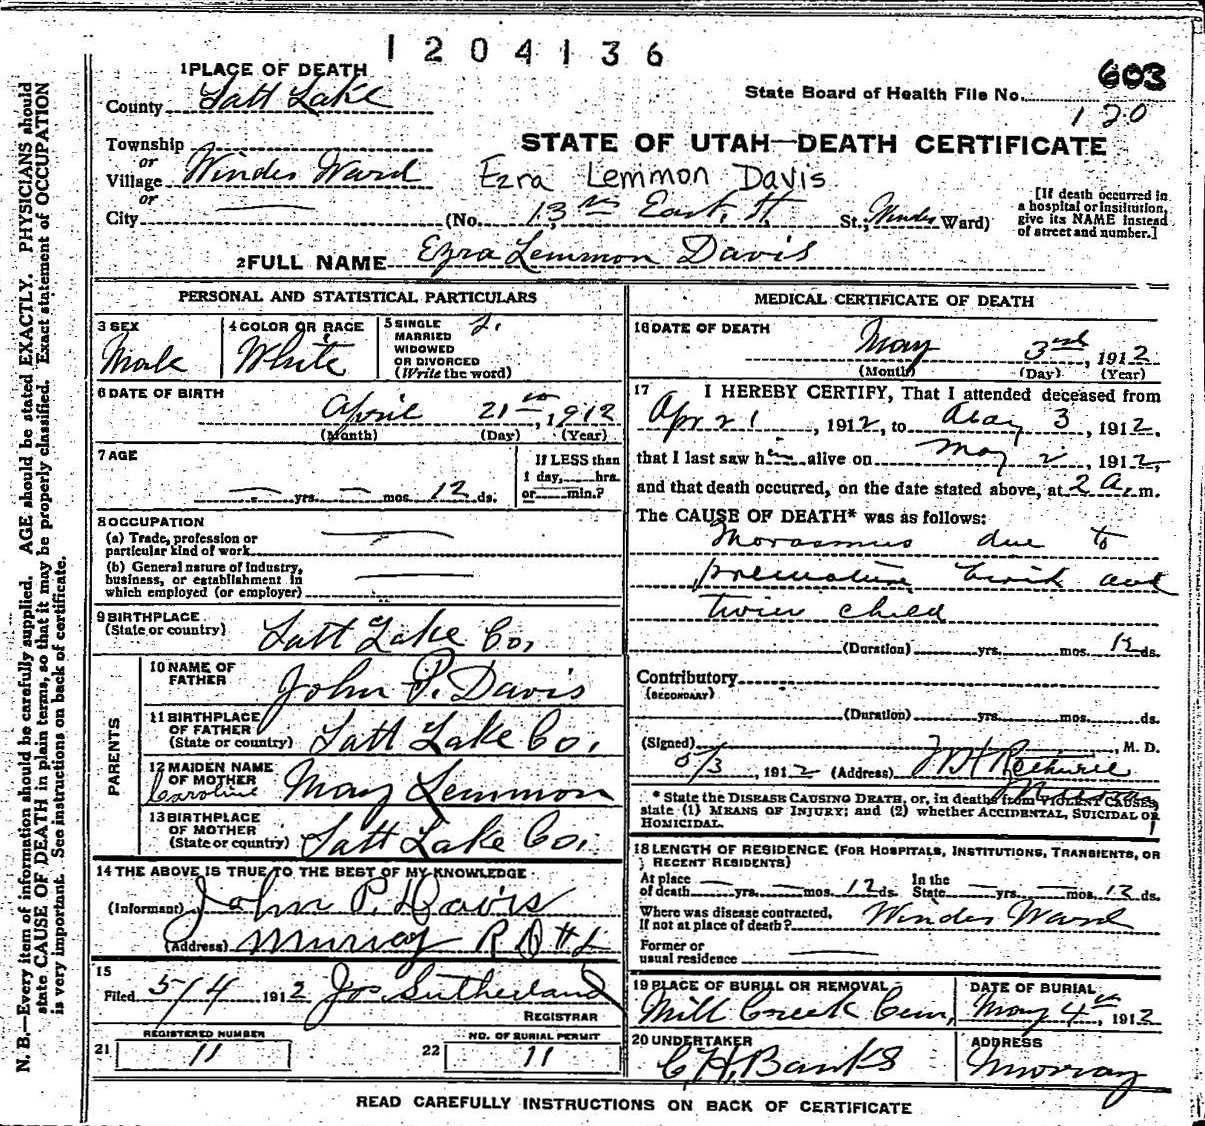 1204136
1 PLACE OF DEATH
603
County Salt Lake
State Board of Health File No.
120
Township
or
Village Winder Ward
or
City
STATE OF UTAH—DEATH CERTIFICATE
Ezra Lemmon Davis
(No. 13th East St St.; Winder Ward)
[If death occurred in
a hospital or institution,
give its NAME instead
of street and number.]
2 FULL NAME Ezra Lemmon Davis
PERSONAL AND STATISTICAL PARTICULARS
3 SEX
Male
4 COLOR OR RACE
White
5 SINGLE
MARRIED
WIDOWED
OR DIVORCED
(Write the word)
S.
6 DATE OF BIRTH
April 21st, 1912
(Month) (Day) (Year)
7 AGE
— yrs. — mos. 12 ds.
If LESS than
1 day, hrs.
or min.?
8 OCCUPATION
(a) Trade, profession or
particular kind of work
(b) General nature of industry,
business, or establishment in
which employed (or employer)
9 BIRTHPLACE
(State or country) Salt Lake Co.
PARENTS
10 NAME OF
FATHER John P. Davis
11 BIRTHPLACE
OF FATHER
(State or country) Salt Lake Co.
12 MAIDEN NAME
OF MOTHER
Caroline May Lemmon
13 BIRTHPLACE
OF MOTHER
(State or country) Salt Lake Co.
14 THE ABOVE IS TRUE TO THE BEST OF MY KNOWLEDGE
(Informant) John P. Davis
(Address) Murray R D #
15
Filed 5/4 1912 Jos Sutherland
REGISTRAR
REGISTERED NUMBER
21 11
NO. OF BURIAL PERMIT
22 11
MEDICAL CERTIFICATE OF DEATH
16 DATE OF DEATH
May 3rd, 1912
(Month) (Day) (Year)
17 I HEREBY CERTIFY, That I attended deceased from
Apr 21, 1912, to May 3, 1912,
that I last saw him alive on May 2, 1912,
and that death occurred, on the date stated above, at 2 A.m.
The CAUSE OF DEATH* was as follows:
Morasmus due to
premature birth and
twin child
(Duration) yrs. mos. 12 ds.
Contributory
(SECONDARY)
(Duration) yrs. mos. ds.
(Signed) , M. D.
5/3, 1912 (Address)
* State the DISEASE CAUSING DEATH, or, in deaths from VIOLENT CAUSES,
state (1) MEANS OF INJURY; and (2) whether ACCIDENTAL, SUICIDAL OR
HOMICIDAL.
18 LENGTH OF RESIDENCE (FOR HOSPITALS, INSTITUTIONS, TRANSIENTS, OR
RECENT RESIDENTS)
At place
of death — yrs. — mos. 12 ds. In the
State — yrs. — mos. 12 ds.
Where was disease contracted,
If not at place of death? Winder Ward
Former or
usual residence
19 PLACE OF BURIAL OR REMOVAL
Mill Creek Cem,
DATE OF BURIAL
May 4th, 1912
20 UNDERTAKER
C. H. Banks
ADDRESS
Murray
READ CAREFULLY INSTRUCTIONS ON BACK OF CERTIFICATE
N. B.—Every item of information should be carefully supplied. AGE should be stated EXACTLY. PHYSICIANS should
state CAUSE OF DEATH in plain terms, so that it may be properly classified. Exact statement of OCCUPATION
is very important. See instructions on back of certificate.